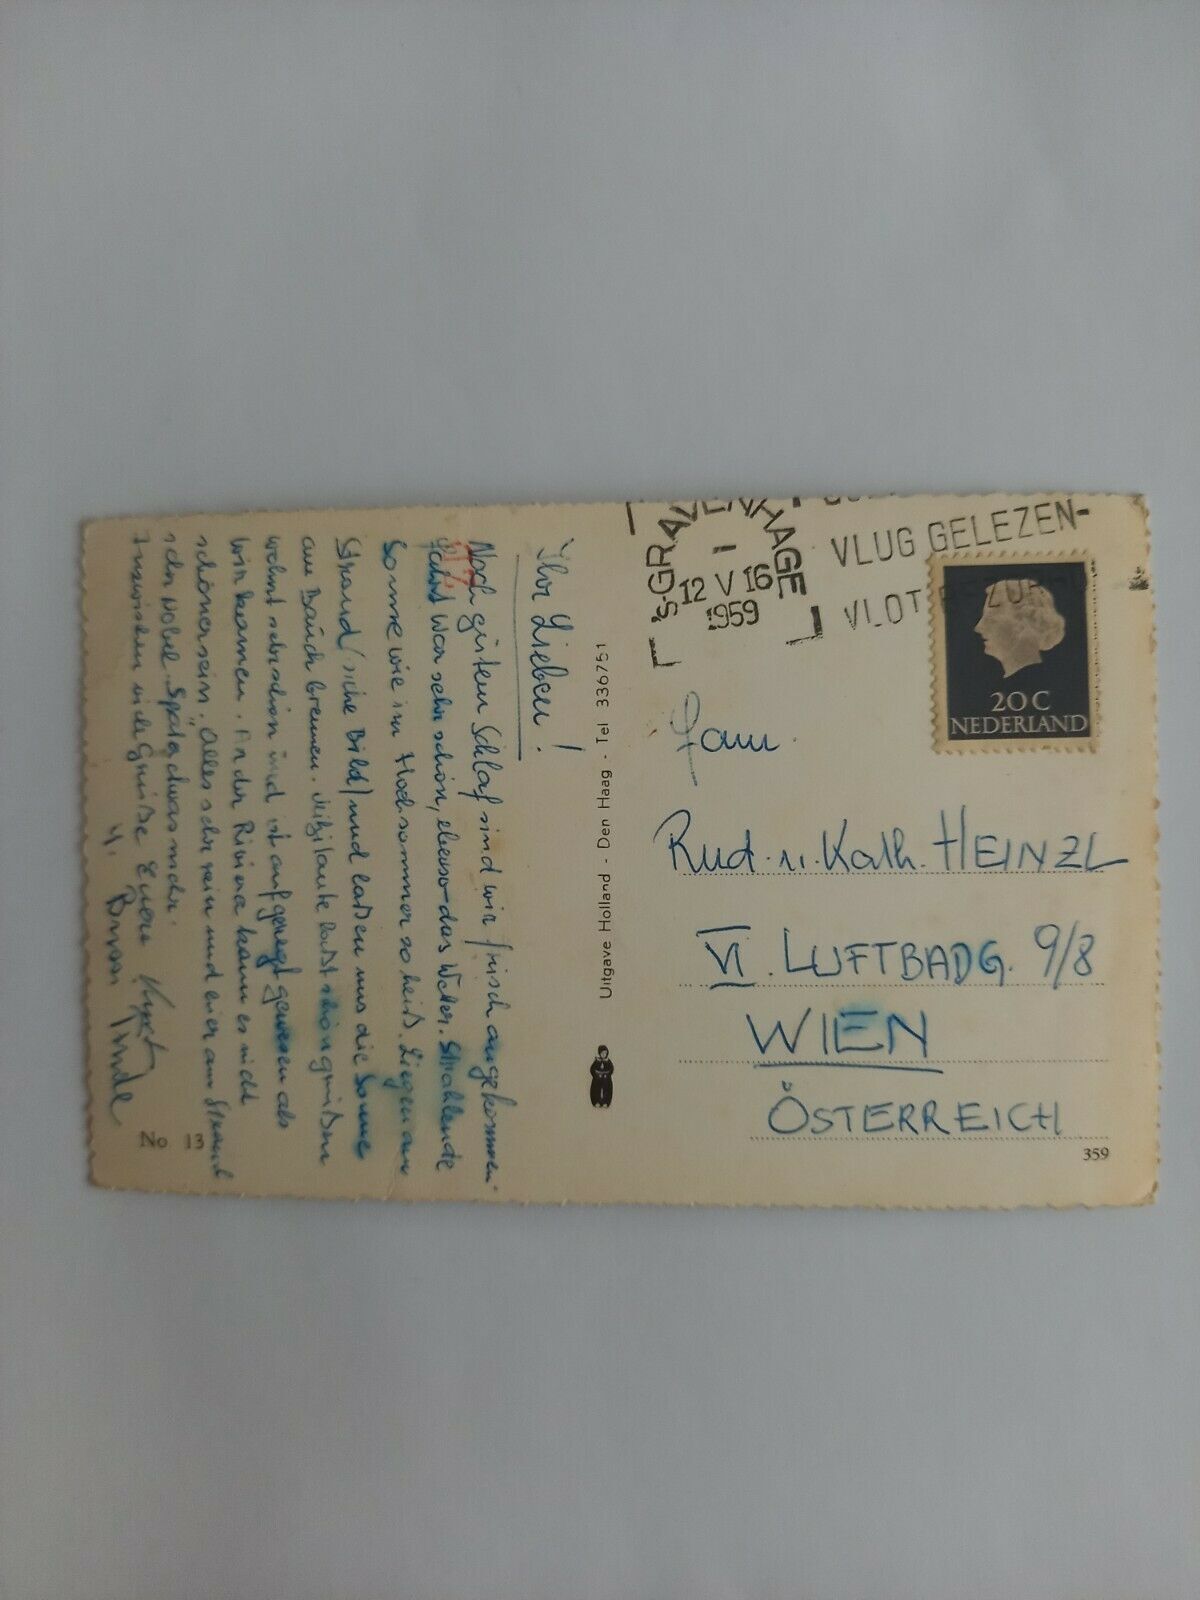 Ihr Lieben!
Nach gutem Schlaf sind wir frisch angekommen.
Fahrt war sehr schön, ebenso das Wetter. Strahlende
Sonne wie im Hochsommer so heiß. Liegen am
Strand (siehe Bild) und laßen uns die Sonne
am Bauch brennen. Mizitante läßt schön grüßen
wohnt sehr schön und ist aufgeregt gewesen als
wir kamen. An der Riviera kann es nicht
schöner sein. Alles sehr rein und hier am Strand
sehr nobel. Später etwas mehr.
Inzwischen viele Grüße Euere
u.
No 13
Uitgave Holland - Den Haag - Tel 336751
's-GRAVENHAGE
1
12 V 16
1959
VLUG GELEZEN-
VLOT
20 C
NEDERLAND
Fam.
Rud. u. Kath. HEINZL
VI. LUFTBADG. 9/8
WIEN
ÖSTERREICH
359